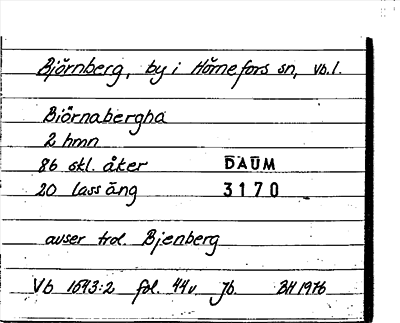 Björnberg, by i Hörnefors sn, Vb.l.
Biörnabergha
2 hmn
86 skl. åker DAUM
20 lass äng 3170
avser trol. Bjenberg
Vb 1643:2 fol. 44v Jb BH 1976